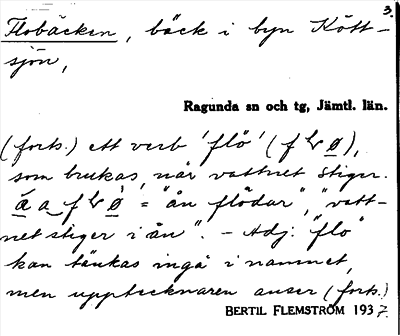 3.
Flobäcken, bäck i byn Kött-
sjön,
Ragunda sn och tg, Jämtl. län.
(forts.) ett verb 'flö' (f ø),
som brukas, när vattnet stiger.
a f ø = "ån flödar", "vatt-
net stiger i ån". - Adj. "flö"
kan tänkas ingå i namnet,
men upptecknaren anser (forts.)
BERTIL FLEMSTRÖM 1937.